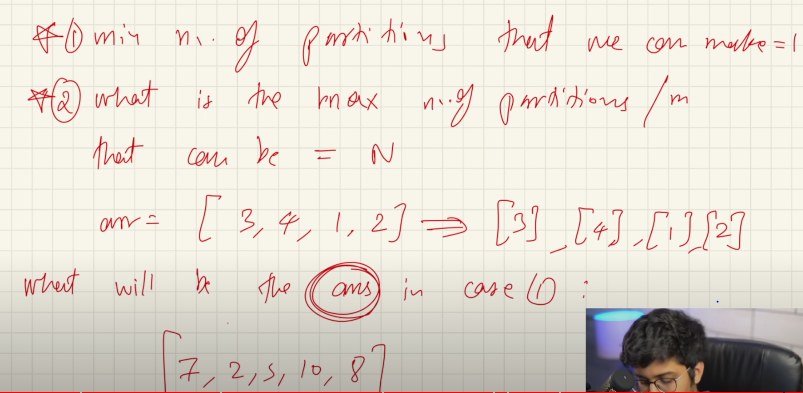 * ① min no. of partitions that we can make = 1
* ② what is the max no. of partitions / m
that can be = N
arr = [ 3, 4, 1, 2 ] ⇒ [3], [4], [1], [2]
what will be the ans in case ① :
[ 7, 2, 5, 10, 8 ]